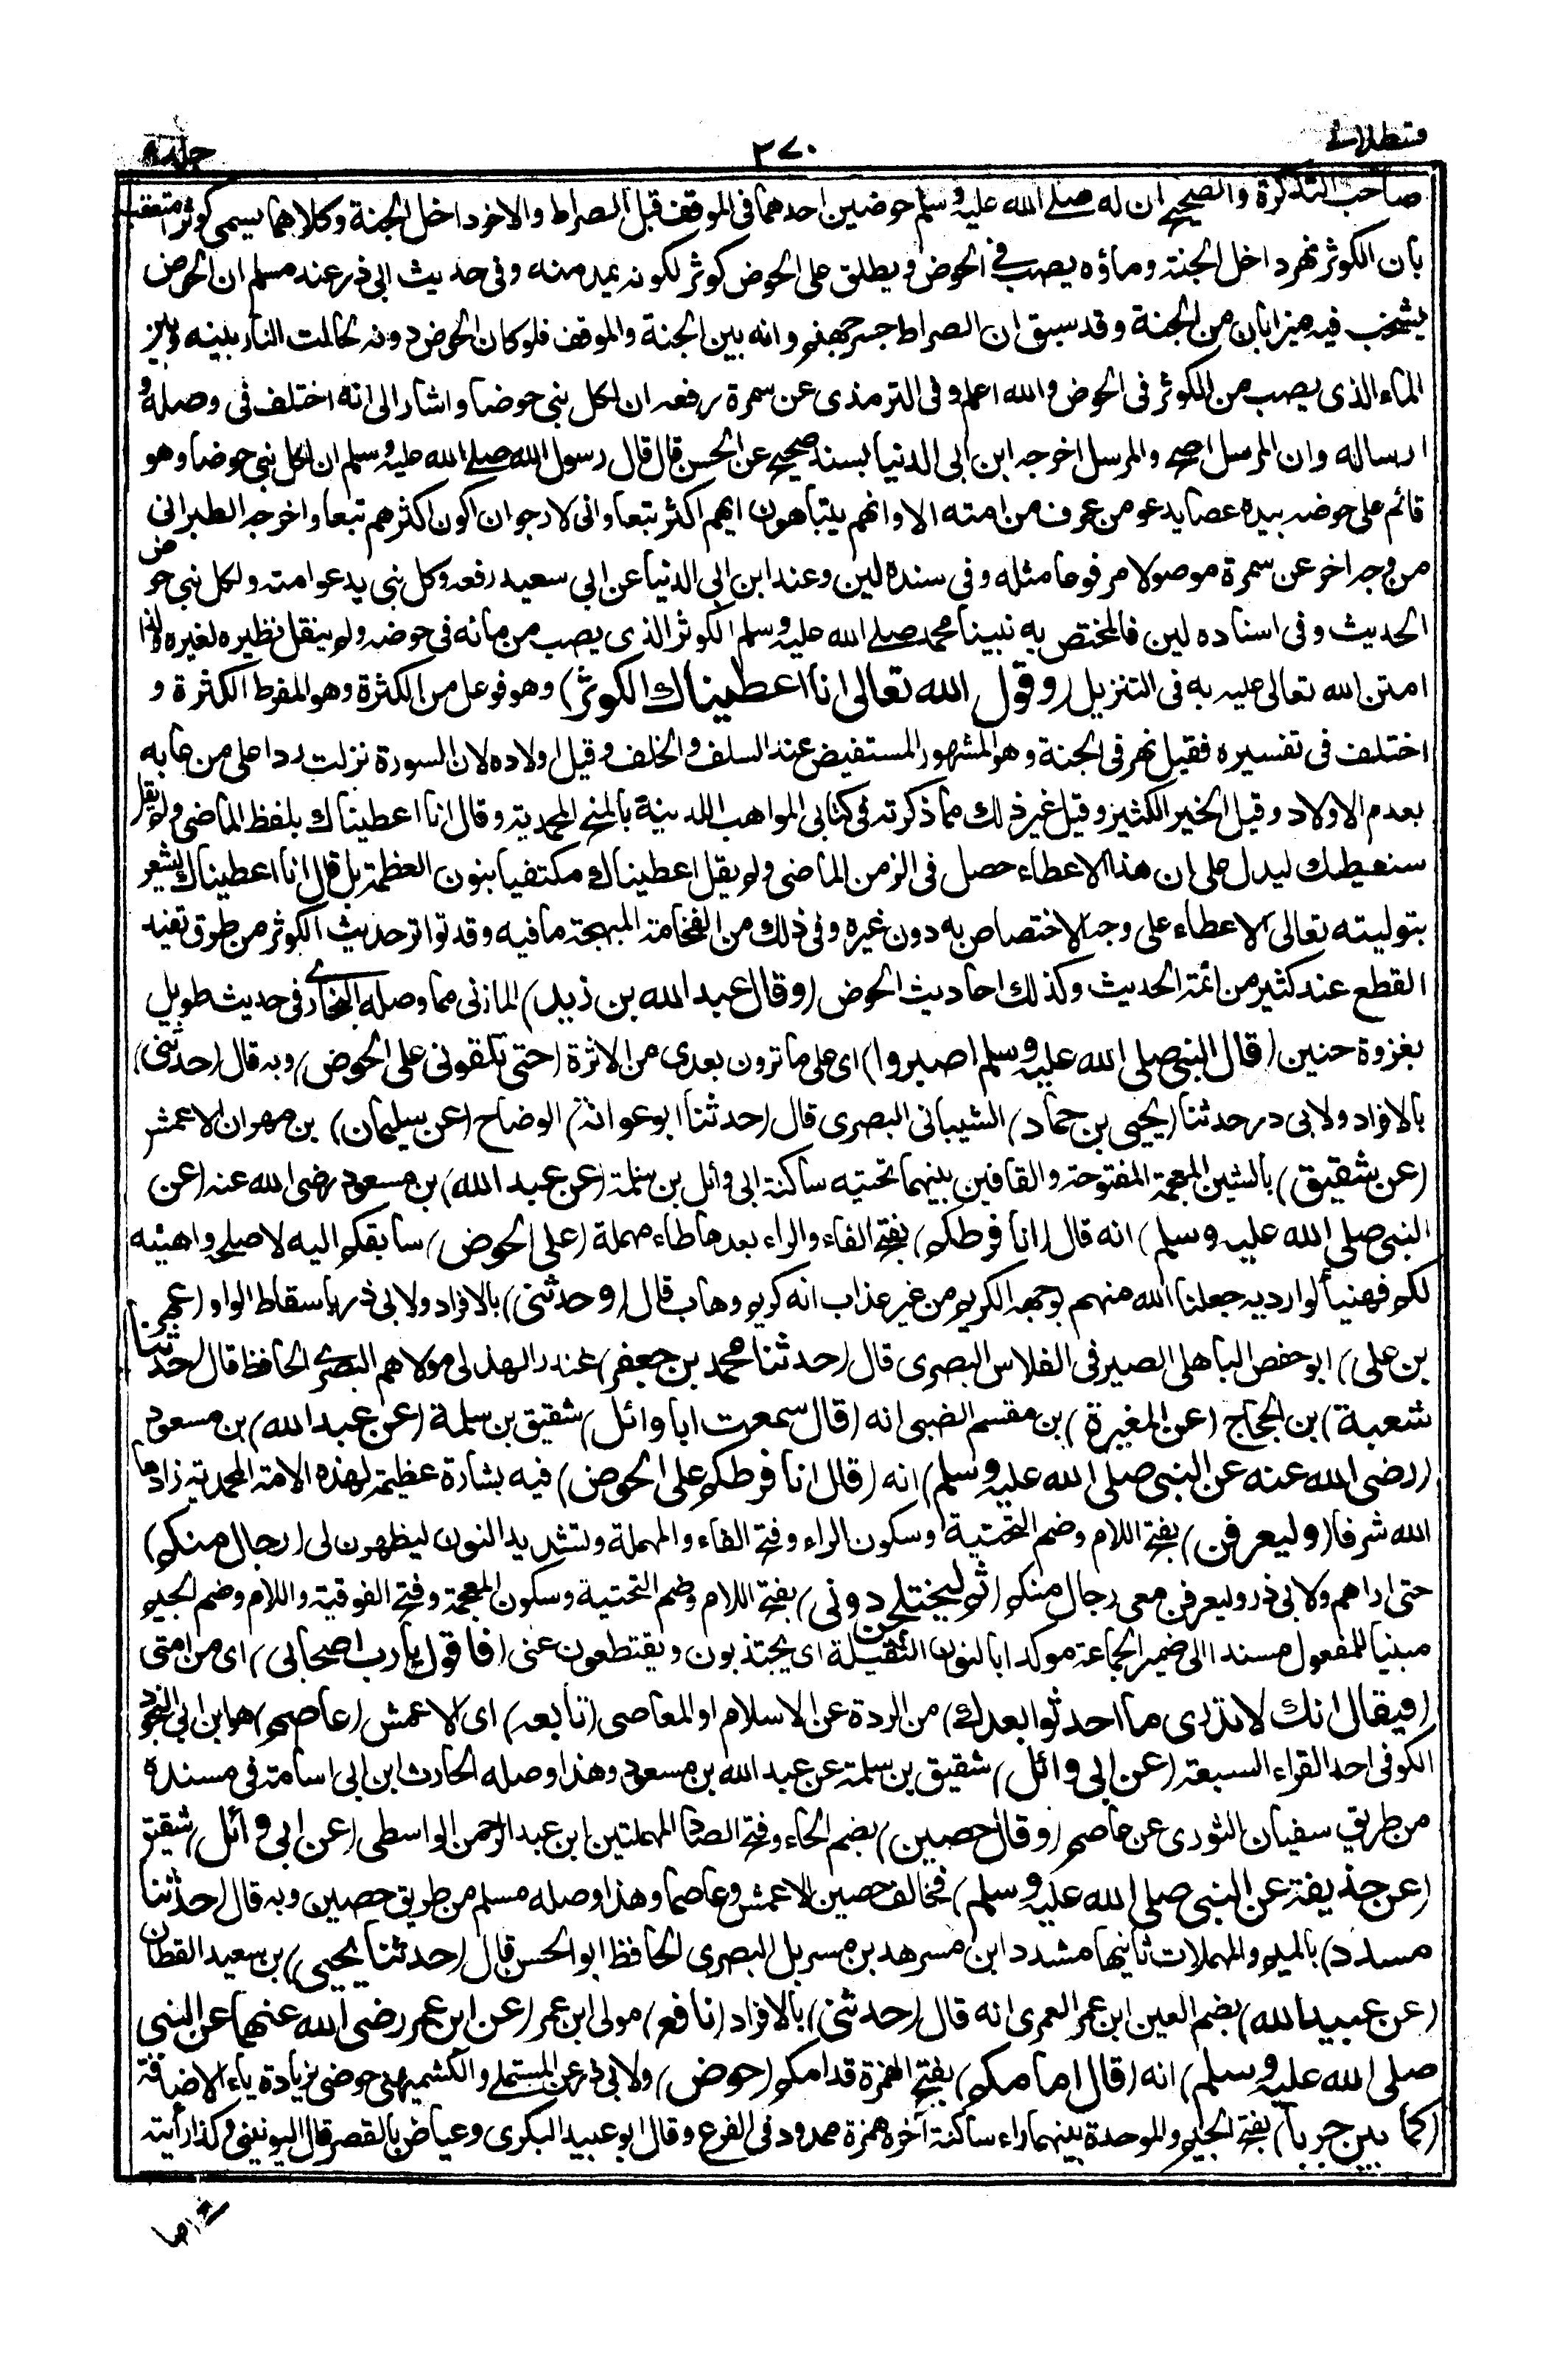 قسطلانی
۳۷۰
جلد ۹
صاحب التذكرة والصحيح ان له صلے الله عليه وسلم حوضين احدهما فى الموقف قبل الصراط والاخر داخل الجنة وكلاهما يسمى كوثرا متعقب
بان الكوثر نهر داخل الجنة وماؤه يصب فى الحوض ويطلق على الحوض كوثر لكونه يمد منه وفى حديث ابى ذر عند مسلم ان الحوض
يشخب فيه ميزابان من الجنة وقد سبق ان الصراط جسر جهنم وانه بين الجنة والموقف فلو كان الحوض دونه لحالت النار بينه وبين
الماء الذى يصب من الكوثر فى الحوض والله اعلم وفى الترمذى عن سمرة رفعه ان لكل نبى حوضا واشار الى انه اختلف فى وصله و
ارساله وان المرسل اصح والمرسل اخرجه ابن ابى الدنيا بسند صحيح عن الحسن قال قال رسول الله صلے الله عليه وسلم ان لكل نبى حوضا وهو
قائم على حوضه بيده عصا يدعو من عرف من امته الا وانهم يتباهون ايهم اكثر تبعا وانى لارجو ان اكون اكثرهم تبعا واخرجه الطبرانى
من وجه اخر عن سمرة موصولا مرفوعا مثله وفى سنده لين وعند ابن ابى الدنيا عن ابى سعيد رفعه وكل نبى يدعو امته ولكل نبى حوض
الحديث وفى اسناده لين فالمختص به نبينا محمد صلے الله عليه وسلم الكوثر الذى يصب من مائه فى حوضه ولم ينقل نظيره لغيره ولذا
امتن الله تعالى عليه به فى التنزيل (وقول الله تعالى انا اعطيناك الكوثر) وهو فوعل من الكثرة وهو المفرط الكثرة و
اختلف فى تفسيره فقيل نهر فى الجنة وهو المشهور المستفيض عند السلف والخلف وقيل اولاده لان السورة نزلت ردا على من عابه
بعدم الاولاد وقيل الخير الكثير وقيل غير ذلك مما ذكرته فى كتابى المواهب اللدنية بالمنح المحمدية وقال انا اعطيناك بلفظ الماضى ولم يقل
سنعطيك ليدل على ان هذا الاعطاء حصل فى الزمن الماضى ولم يقل اعطيناك مكتفيا بنون العظمة بل قال انا اعطيناك ليشعر
بتوليته تعالى الاعطاء على وجه الاختصاص به دون غيره وفى ذلك من الفخامة المبهجة ما فيه وقد تواتر حديث الكوثر من طرق تفيد
القطع عند كثير من ائمة الحديث وكذلك احاديث الحوض (وقال عبد الله بن زيد) المازنى مما وصله البخارے فى حديث طويل
بغزوة حنين (قال النبى صلى الله عليه وسلم اصبروا) اى على ما ترون بعدى من الاثرة (حتى تلقونى على الحوض) وبه قال (حدثنى)
بالافراد ولابى ذر حدثنا (يحيى بن حماد) الشيبانى البصرى قال (حدثنا ابو عوانة) الوضاح (عن سليمان) بن مهران الاعمش
(عن شقيق) بالشين المعجمة المفتوحة والقافين بينهما تحتيه ساكنة ابى وائل بن سلمة (عن عبد الله) بن مسعود رضى الله عنه (عن
النبى صلى الله عليه وسلم) انه قال (انا فرطكم) بفتح الفاء والراء بعدها طاء مهملة (على الحوض) سابقكم اليه لاصلحه واهيئه
لكم فهنيأ لوارديه جعلنا الله منهم بوجهه الكريم من غير عذاب انه كريم وهاب قال (وحدثنى) بالافراد ولابى ذر باسقاط الواو (عمرو
بن على) ابو حفص الباهلى الصيرفى الفلاس البصرى قال (حدثنا محمد بن جعفر) غندر الهذلى مولاهم البصرے الحافظ قال (حدثنا
شعبة) بن الحجاج (عن المغيرة) بن مقسم الضبى انه (قال سمعت ابا وائل) شقيق بن سلمة (عن عبد الله) بن مسعود
(رضى الله عنه عن النبى صلى الله عليه وسلم) انه (قال انا فرطكم على الحوض) فيه بشارة عظيمة لهذه الامة المحمدية زادها
الله شرفا (وليعرفن) بفتح اللام وضم التحتية وسكون الراء وفتح الفاء والمهملة وتشديد النون ليظهرن لى (رجال منكم)
حتى اراهم ولابى ذر وليعرفن معى رجال منكم (ثم ليختلجن دونى) بفتح اللام وضم التحتية وسكون المعجمة وفتح الفوقية واللام وضم الجيم
مبنيا للمفعول مسندا الى ضمير الجماعة موكدا بالنون الثقيلة اى يجتذبون ويقتطعون عنى (فاقول يا رب اصحابى) اى من امتى
(فيقال انك لا تدرى ما احدثوا بعدك) من الردة عن الاسلام او المعاصى (تابعه) اى الاعمش (عاصم) هو ابن ابى النجود
الكوفى احد القراء السبعة (عن ابى وائل) شقيق بن سلمة عن عبد الله بن مسعود وهذا وصله الحارث ابن ابى اسامة فى مسنده
من طريق سفيان الثورى عن عاصم (وقال حصين) بضم الحاء وفتح الصاد المهملتين ابن عبد الرحمن الواسطى (عن ابى وائل) شقيق
(عن حذيفة عن النبى صلى الله عليه وسلم) فخالف حصين الاعمش وعاصما وهذا وصله مسلم من طريق حصين وبه قال (حدثنا
مسدد) بالميم والمهملات ثانيها مشدد ابن مسرهد بن مسربل البصرى الحافظ ابو الحسن قال (حدثنا يحيى) بن سعيد القطان
(عن عبيد الله) بضم العين ابن عمر العمرى انه قال (حدثنى) بالافراد (نافع) مولى ابن عمر (عن ابن عمر رضى الله عنهما عن النبى
صلى الله عليه وسلم) انه (قال امامكم) بفتح الهمزة قدامكم (حوض) ولابى ذر عن المستملے والكشميهنى حوضى بزيادة ياء الاضافة
(كما بين جربا) بفتح الجيم والموحدة بينهما راء ساكنة آخره همزة ممدود فى الفرع وقال ابو عبيد البكرى وعياض بالقصر قال اليونينى وكذا رأيته